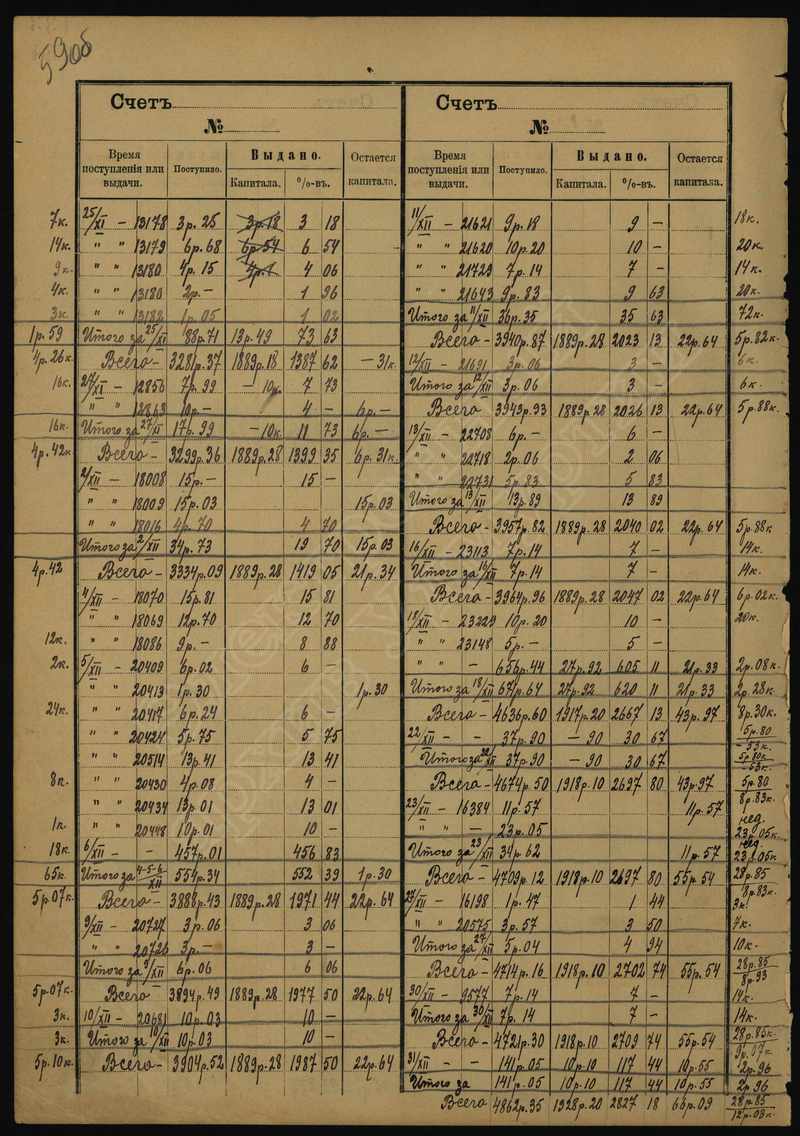 590б
Счетъ
№
Время поступленія или выдачи.
Поступило.
Выдано.
Капитала.
%-въ.
Остается капитала.
7к. 25/XI – 13178 3р.25 3р.18 3 18
14к. " " 13179 6р.68 6р.54 6 54
9к. " " 13180 4р.15 4 06
4к. " " 13180 2р.– 1 96
3к. " " 13182 1р.05 1 02
1р.59 Итого за 25/XI 88р.71 13р.49 73 63
4р.26к. Всего – 3281р.37 1889р.18 1387 62 – 31к.
16к. 27/XI – 12856 7р.99 – 10к. 7 73
" " 12863 10р.– 4 – 6р.–
16к. Итого за 27/XI 17р.99 – 10к. 11 73 6р.–
4р.42к Всего – 3299р.36 1889р.28 1399 35 6р.31к.
2/XII – 18008 15р.– 15 –
" " 18009 15р.03 15р.03
" " 18016 4р.70 4 70
Итого за 2/XII 34р.73 19 70 15р.03
4р.42 Всего – 3334р.09 1889р.28 1419 05 21р.34
4/XII – 18070 15р.81 15 81
" " 18069 12р.70 12 70
12к. " " 18086 9р.– 8 88
2к. 5/XII – 20409 6р.02 6 –
" " 20413 1р.30 1р.30
24к. " " 20417 6р.24 6 –
" " 20424 5р.75 5 75
" " 20514 13р.41 13 41
8к. " " 20430 4р.08 4 –
" " 20434 13р.01 13 01
1к. " " 20448 10р.01 10 –
18к. 6/XII – – 457р.01 456 83
65к. Итого за 4-5-6/XII 554р.34 552 39 1р.30
5р.07к. Всего – 3888р.43 1889р.28 1971 44 22р.64
9/XII – 20727 3р.06 3 06
" " 20726 3р.– 3 –
Итого за 9/XII 6р.06 6 06
5р.07к. Всего 3894р.49 1889р.28 1977 50 22р.64
3к. 10/XII – 20681 10р.03 10 –
3к. Итого за 10/XII 10р.03 10 –
5р.10к. Всего – 3904р.52 1889р.28 1987 50 22р.64
Счетъ
№
Время поступленія или выдачи.
Поступило.
Выдано.
Капитала.
%-въ.
Остается капитала.
11/XII – 21621 9р.18 9 – 18к.
" " 21620 10р.20 10 – 20к.
" " 21729 7р.14 7 – 14к.
" " 21643 9р.83 9 63 20к.
Итого за 11/XII 36р.35 35 63 72к.
Всего – 3940р.87 1889р.28 2023 13 22р.64 5р.82к.
12/XII – 21691 3р.06 3 – 6к.
Итого за 12/XII 3р.06 3 – 6к.
Всего 3943р.93 1889р.28 2026 13 22р.64 5р.88к.
13/XII – 22708 6р.– 6 –
" " 22718 2р.06 2 06
" " 22731 5р.83 5 83
Итого за 13/XII 13р.89 13 89
Всего – 3957р.82 1889р.28 2040 02 22р.64 5р.88к
16/XII – 23113 7р.14 7 – 14к.
Итого за 16/XII 7р.14 7 – 14к.
Всего – 3964р.96 1889р.28 2047 02 22р.64 6р.02к.
18/XII – 23229 10р.20 10 – 20к.
" " 23148 5р.– 5 –
" " – 656р.44 27р.92 605 11 21р.33 2р.08к.
Итого за 18/XII 671р.64 27р.92 620 11 21р.33 2р.28к.
Всего – 4636р.60 1917р.20 2667 13 43р.97 8р.30к.
22/XII – – 37р.90 – 90 30 67 5р.80 – 53к.
Итого за 22/XII 37р.90 – 90 30 67 5р.80к – 53к.
Всего – 4674р.50 1918р.10 2697 80 43р97 5р.80 8р.83к.
23/XII – 16384 11р.57 11р.57
" " – 23р.05 нед. 23р.05к.
Итого за 23/XII 34р62 11р.57 нед. 23р.05к
Всего – 4709р.12 1918р.10 2697 80 55р54 28р.85 8р.83к.
27/XII – 16198 1р.47 1 44 3к.
" " 20575 3р.57 3 50 7к.
Итого за 27/XII 5р.04 4 94 10к.
Всего – 4714р.16 1918р.10 2702 74 55р.54 28р.85 8р93
30/XII – 9577 7р.14 7 – 14к.
Итого за 30/XII 7р.14 7 – 14к.
Всего – 4721р.30 1918р.10 2709 74 55р.54 28р.85к. 9р.07к.
31/XII – – 141р.05 10р.10 117 44 10р.55 2р.96
Итого за 141р.05 10р.10 117 44 10р.55 2р96
Всего 4862р.35 1928р.20 2827 18 66р.09 28р.85 12р.03к.